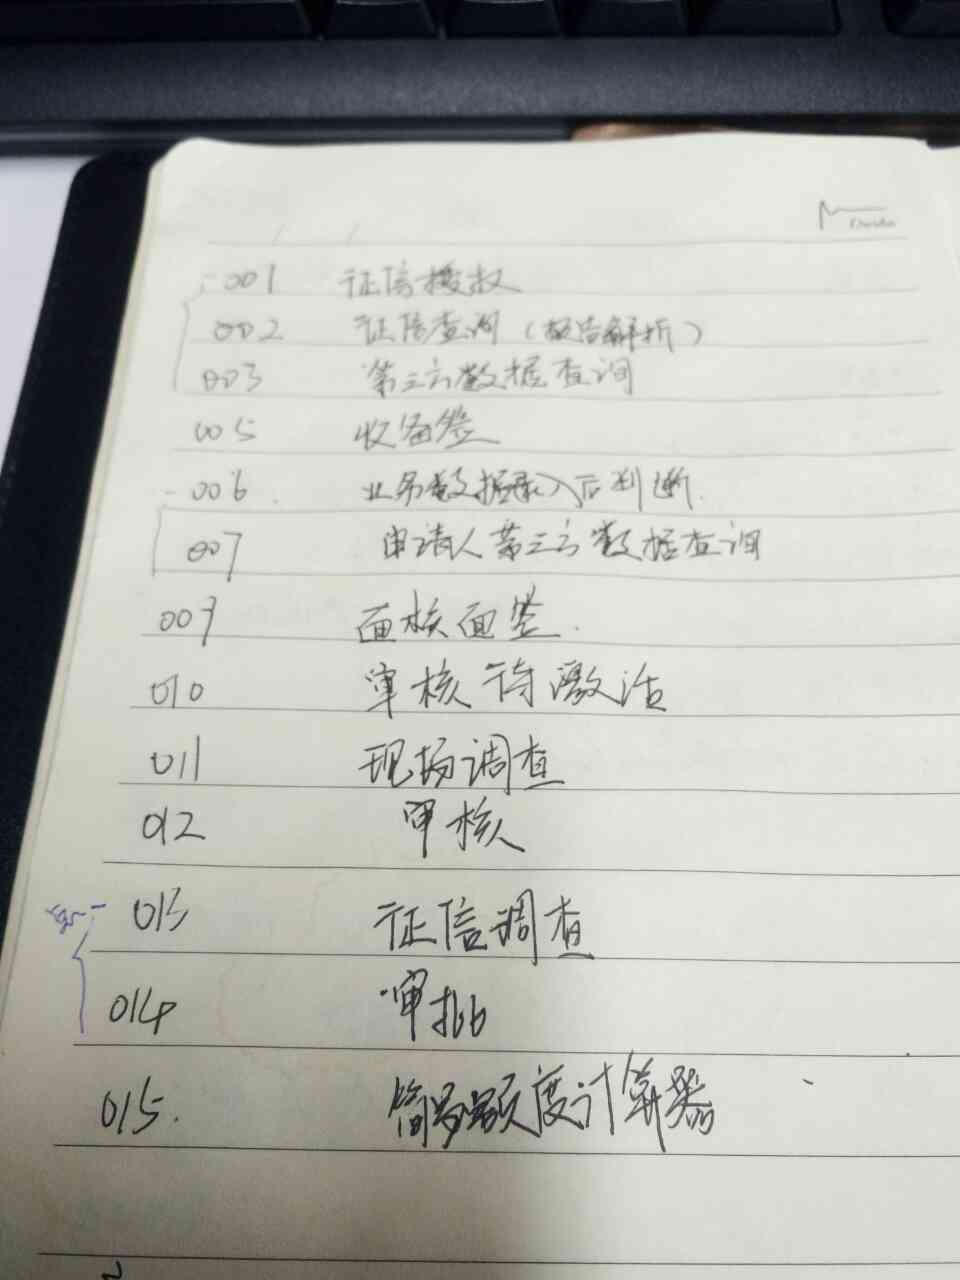 001 征信授权
002 征信查询（报告解析）
003 第三方数据查询
005 收备签
006. 业务数据录入后判断.
007 申请人第三方数据查询
009 面核面签.
010 审核待激活
011 现场调查
012 审核
013 征信调查
014 审批
015. 简易额度计算器